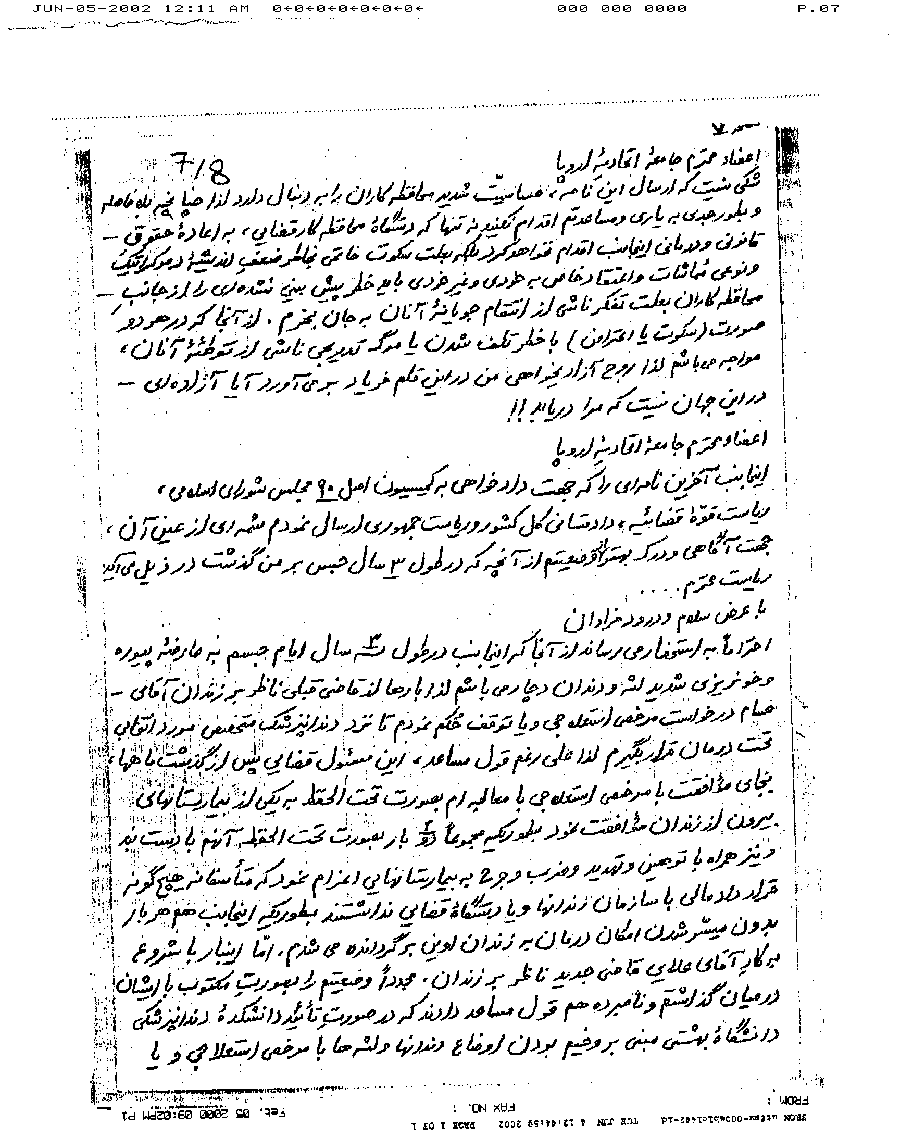 JUN-05-2002 12:11 AM 0+0+0+0+0+0+0+0+ 000 000 0000 P.07
7/8
اعضاء محترم جامعهٔ اتحادیهٔ اروپا
شکی نیست که ارسال این نامه، حساسیت شدید محافظه کاران را به دنبال دارد لذا چنانچه بلافاصله
و بطور جدی به یاری و مساعدتم اقدام نکنید نه تنها که دستگاهٔ محافظه کار قضایی، به اعادهٔ حقوق –
قانونی و درمانی اینجانب اقدام نخواهد کرد بلکه بعلت سکوت خاص بخاطر ضعف اندیشهٔ دموکراتیک
ونوعی مماشات و اعتقاد خاص به خودی و غیر خودی باید خطر پیش بینی نشده ای را از جانب –
محافظه کاران بعلت تفکر ناشی از انتقام جویانهٔ آنان به جان بخرم. از آنجا که در هر دو
صورت (سکوت یا اعتراض) با خطر تلف شدن یا مرگ تدریجی ناشی از توطئهٔ آنان،
مواجه می باشم لذا روح آزادیخواهی من در این قلم فریاد بر می آورد آیا آزاده ای –
در این جهان نیست که مرا دریابد!!
اعضاء محترم جامعهٔ اتحادیهٔ اروپا
اینجانب آخرین نامه ای را که جهت دادخواهی به کمیسیون اصل ۹۰ مجلس شورای اسلامی،
ریاست قوّهٔ قضائیه، دادستانی کل کشور و ریاست جمهوری ارسال نمودم شمه ای از عین آن،
جهت آگاهی و درک بهتر از وضعیتم از آنچه که در طول ۳ سال حبس بر من گذشت در ذیل می آید
ریاست محترم ....
با عرض سلام و درود فراوان
احتراماً به استحضار می رساند از آنجا که اینجانب در طول ۳ سال ایام حبسم به عارضهٔ پیوره
و خونریزی شدید لثه و دندان دچار می باشم لذا بارها از قاضی قبلی ناظر بر زندان آقای –
درخواست مرخصی استعلاجی و یا توقف حکم نمودم تا نزد دندانپزشک متخصص مورد انتخابی
تحت درمان قرار بگیرم لذا علی رغم قول مساعد، این مسئول قضایی پس از گذشت ماهها،
بجای موافقت با مرخصی استعلاجی با معالجه ام بصورت تحت الحفظ به یکی از بیمارستانهای
بیرون از زندان موافقت نمود بطوریکه مجموعاً دو بار بصورت تحت الحفظ آنهم با دست بند
و نیز همراه با توهین و تهدید و ضرب و جرح به بیمارستانهایی اعزام نمود که متأسفانه هیچ گونه
قرارداد مالی با سازمان زندانها و یا دستگاهٔ قضایی نداشتند بطوریکه اینجانب هم هر بار
بدون میسّر شدن امکان درمان به زندان اوین برگردانده می شدم. امّا اینبار با شروع
به کار آقای علایی قاضی جدید ناظر بر زندان. مجدداً وضعیتم را بصورت مکتوب با ایشان
در میان گذاشتم و نامبرده هم قول مساعد دادند که در صورت تأئید دانشکدهٔ دندانپزشکی
دانشگاهٔ بهشتی مبنی بر وخیم بودن اوضاع دندانها و لثه ها با مرخصی استعلاجی و یا
FROM : FAX NO. : Feb. 05 2000 09:02PM P1
TUE JUN 4 12:44:59 2002 PAGE 1 OF 1